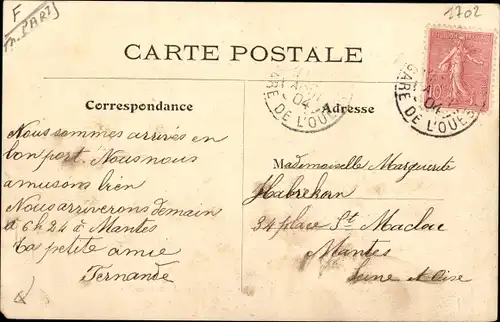 F
Th. PARIS
1702
CARTE POSTALE
GARE DE L'OUEST
04
GARE DE L'OUEST
04
10
Correspondance
Adresse
Nous sommes arrivés en
bon port. Nous nous
amusons bien
Nous arriverons demain
à 6h 24 à Mantes
Ta petite amie
Fernande
Mademoiselle Marguerite
Habrekorn
34 place St Maclou
Mantes
Seine et Oise